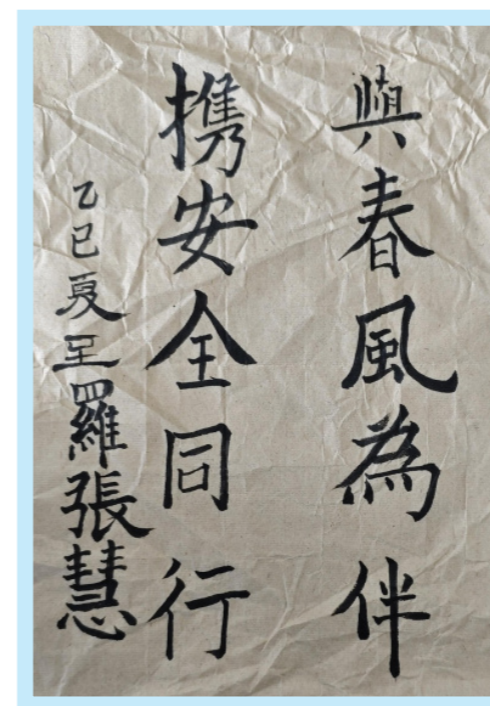 與春風為伴
携安全同行
乙巳夏至羅張慧